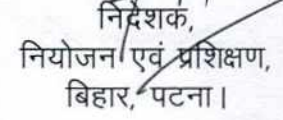 निदेशक,
नियोजन एवं प्रशिक्षण,
बिहार, पटना।